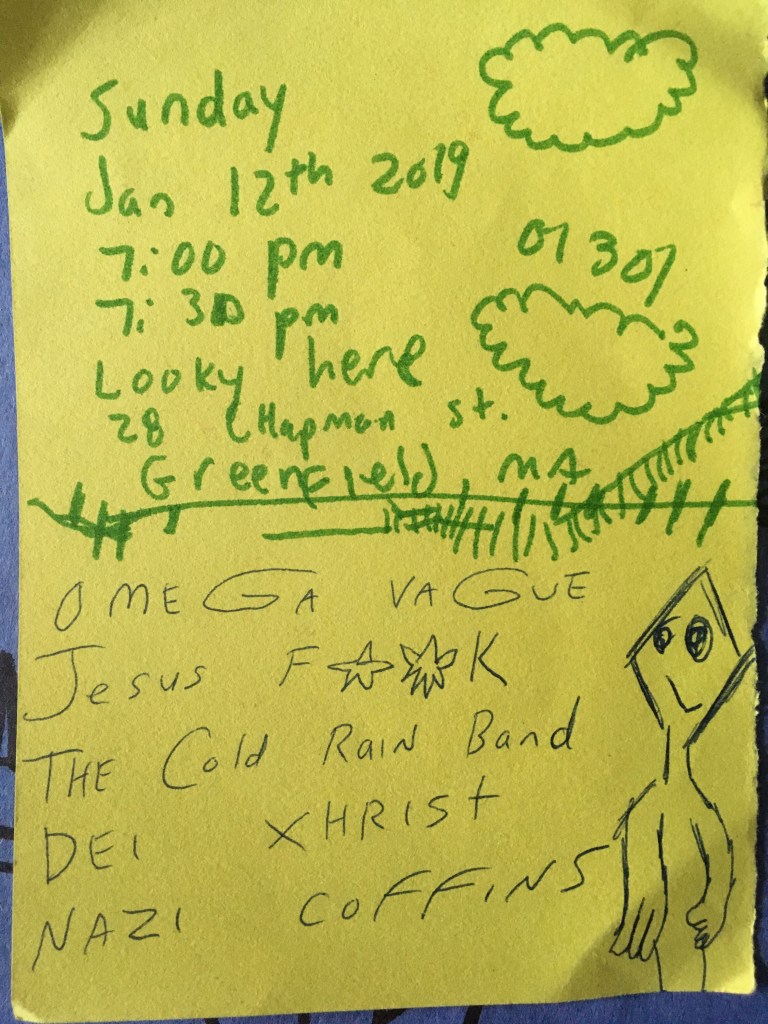 Sunday
Jan 12th 2019
7:00 pm
01301
7:30 pm
Looky here
28 CHapman st.
Greenfield, MA
OMEGA VAGUE
Jesus F☆☆K
THE Cold RaiN Band
DEI XHRIST
NAZI COFFINS